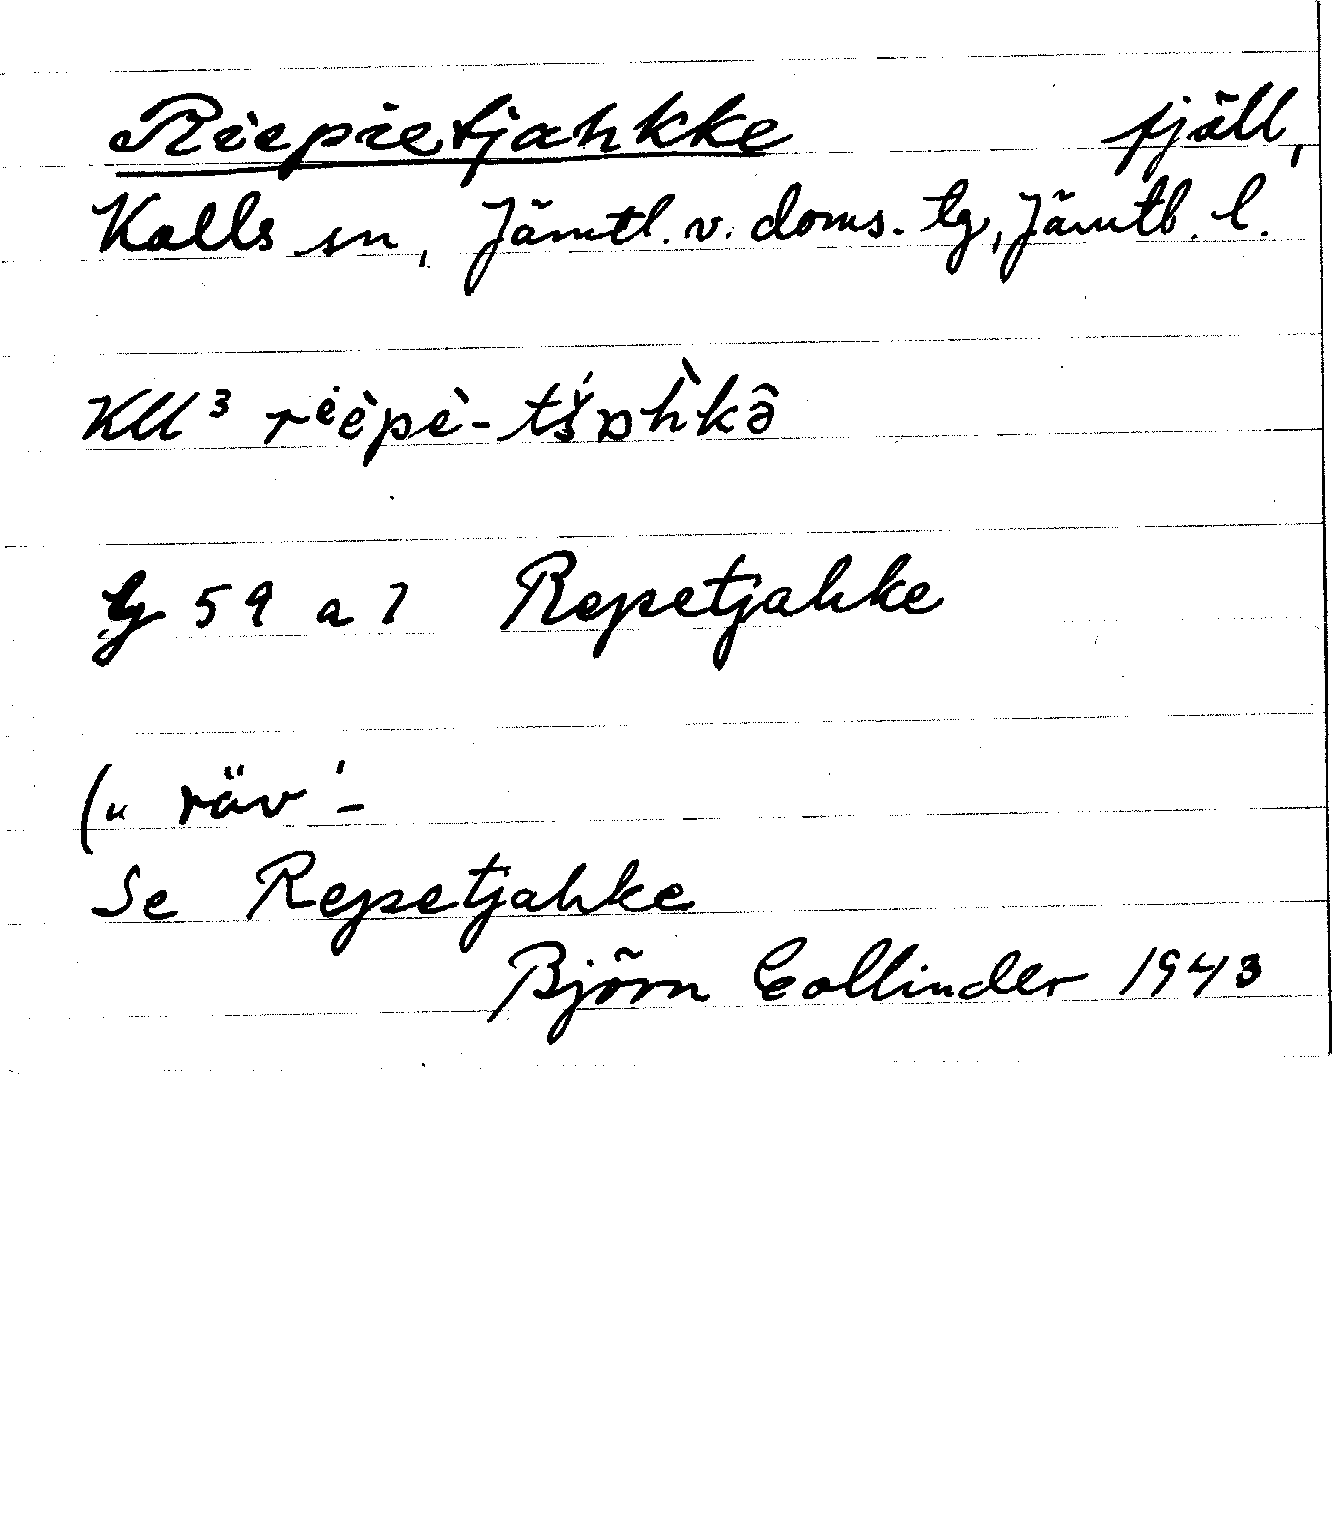 Riepietjahkke fjäll,
Kalls sn, Jämtl. v. doms. tg, Jämtl. l.
KU³ rⁱèpè-tš́ɒh̀kə̂
tg 59 a 7 Repetjahke
(" räv'-
Se Repetjahke
Björn Collinder 1943